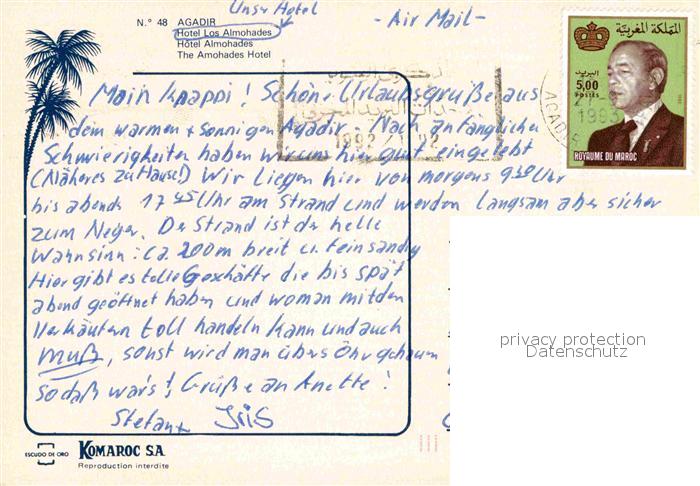 Unser Hotel
- Air Mail -
N.° 48 AGADIR
Hotel Los Almohades
Hôtel Almohades
The Amohades Hotel
المملكة المغربية
البريد
5,00
POSTES
ROYAUME DU MAROC
AGADIR
1993
1992 22
Main Knappi! Schöne Urlaubsgrüße aus
dem warmen + sonnigen Agadir. Nach anfänglichen
Schwierigkeiten haben wir uns hier gut eingelebt
(Näheres zu Hause!) Wir liegen hier von morgens 9 30 Uhr
bis abends 17 45 Uhr am Strand und werden langsam aber sicher
zum Neger. Der Strand ist der helle
Wahnsinn: ca. 200m breit u. feinsandig
Hier gibt es tolle Geschäfte die bis spät
abend geöffnet haben und wo man mit den
Verkäufern toll handeln kann und auch
muß, sonst wird man übers Ohr gehauen
so daß war's! Grüße an Anette!
Stefan + Iris
privacy protection
Datenschutz
ESCUDO DE ORO
KOMAROC S.A.
Reproduction interdite